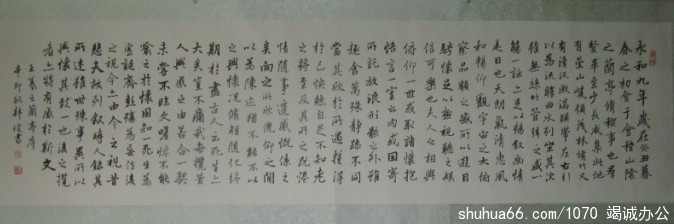 永和九年歲在癸丑暮
春之初會于會稽山陰
之蘭亭脩禊事也
賢畢至少長咸集此地
有崇山峻領茂林脩竹又
有清流激湍暎帶左右引
以為流觴曲水列坐其次
雖無絲竹管弦之盛一
觴一詠亦足以暢敘幽情
是日也天朗氣清惠風
和暢仰觀宇宙之大俯
察品類之盛所以遊目
騁懷足以極視聽之娛
信可樂也夫人之相與
俯仰一世或取諸懷抱
悟言一室之內或因寄
所託放浪形骸之外雖
趣舍萬殊靜躁不同
當其欣於所遇暫得
於己快然自足不知老
之將至及其所之既惓
情隨事遷感慨係之
矣向之所欣俛仰之間
以為陳迹猶不能不以
之興懷況脩短隨化終
期於盡古人云死生亦
大矣豈不痛哉每攬昔
人興感之由若合一契
未嘗不臨文嗟悼不能
喻之於懷固知一死生為
虛誕齊彭殤為妄作後
之視今亦由今之視昔
悲夫故列敘時人錄其
所述雖世殊事異所以
興懷其致一也後之攬
者亦將有感於斯文
王羲之蘭亭序
辛卯秋書
shuhua66.com/1070 竭诚办公